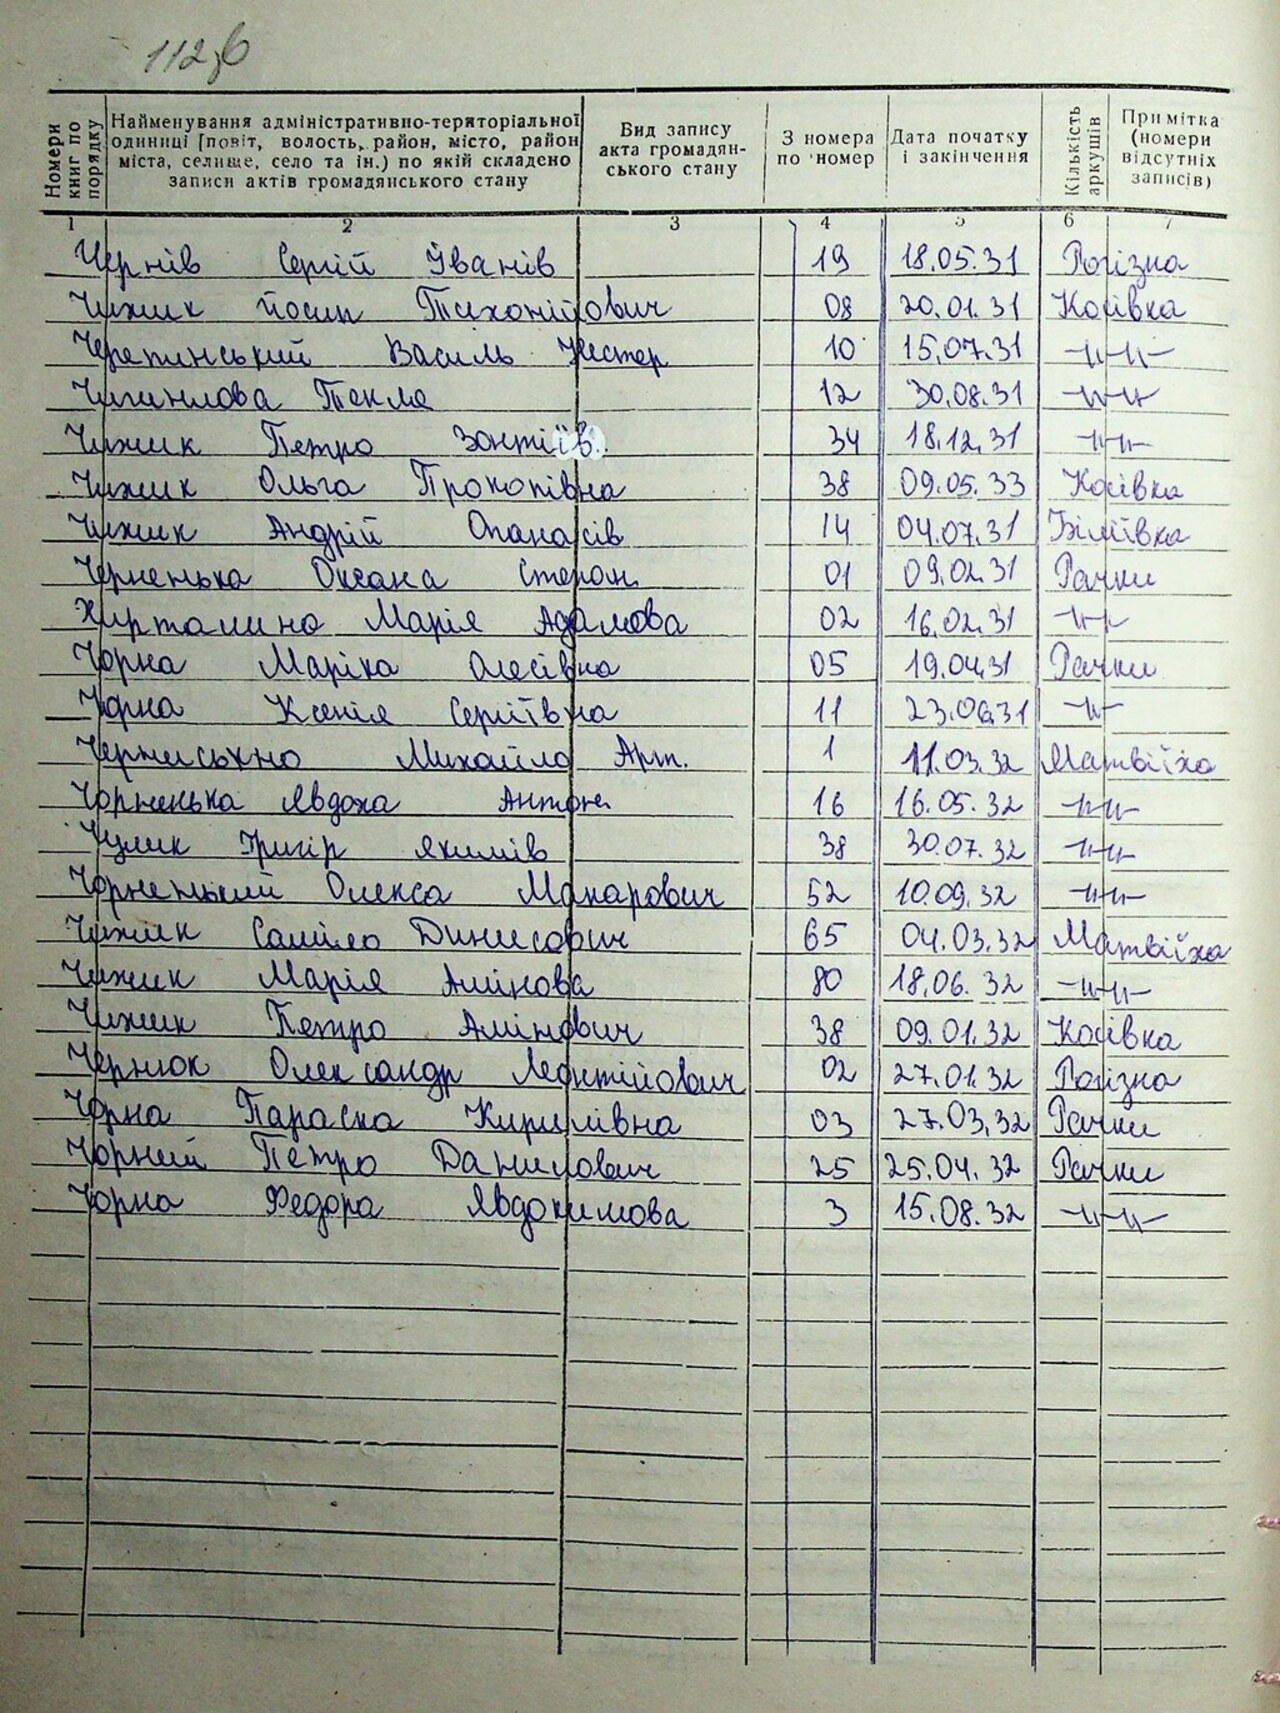 112 зв
Номери книг по порядку
Найменування адміністративно-територіальної одиниці [повіт, волость, район, місто, район міста, селище, село та ін.) по якій складено записи актів громадянського стану
Вид запису акта громадянського стану
З номера по номер
Дата початку і закінчення
Кількість аркушів
Примітка (номери відсутніх записів)
1 2 3 4 5 6 7
Чернів Сергій Іванів 19 18.05.31 Рогізна
Чижик Йосип Тихонійович 08 20.01.31 Косівка
Черепинський Василь Нестер 10 15.07.31 -"-"-
Текля 12 30.08.31 -"-"-
Чижик Петро Зонтіїв. 34 18.12.31 -"-"-
Чижик Ольга Прокопівна 38 09.05.33 Косівка
Чижик Андрій Опанасів 14 04.07.31 Біліївка
Черненька Оксана Степон. 01 09.02.31 Рачки
Марія Адамова 02 16.02.31 -"-
Чорна Маріка Олесівна 05 19.04.31 Рачки
Чорна Ксенія Сергіївна 11 23.06.31 -"-
Михайло Арт. 1 11.03.32 Матвіїха
Чорненька Явдоха Антон. 16 16.05.32 -"-"-
Чулик Григір Якимів 38 30.07.32 -"-"-
Чорненький Олекса Макарович 52 10.09.32 -"-"-
Чижик Саміло Динисович 65 04.03.32 Матвіїха
Чижик Марія Амінова 80 18.06.32 -"-"-
Чижик Петро Амінович 38 09.01.32 Косівка
Чернюк Олександр Леонтійович 02 27.01.32 Рогізна
Чорна Параска Кирилівна 03 27.03.32 Рачки
Чорний Петро Данилович 25 25.04.32 Рачки
Чорна Федора Явдокимова 3 15.08.32 -"-"-